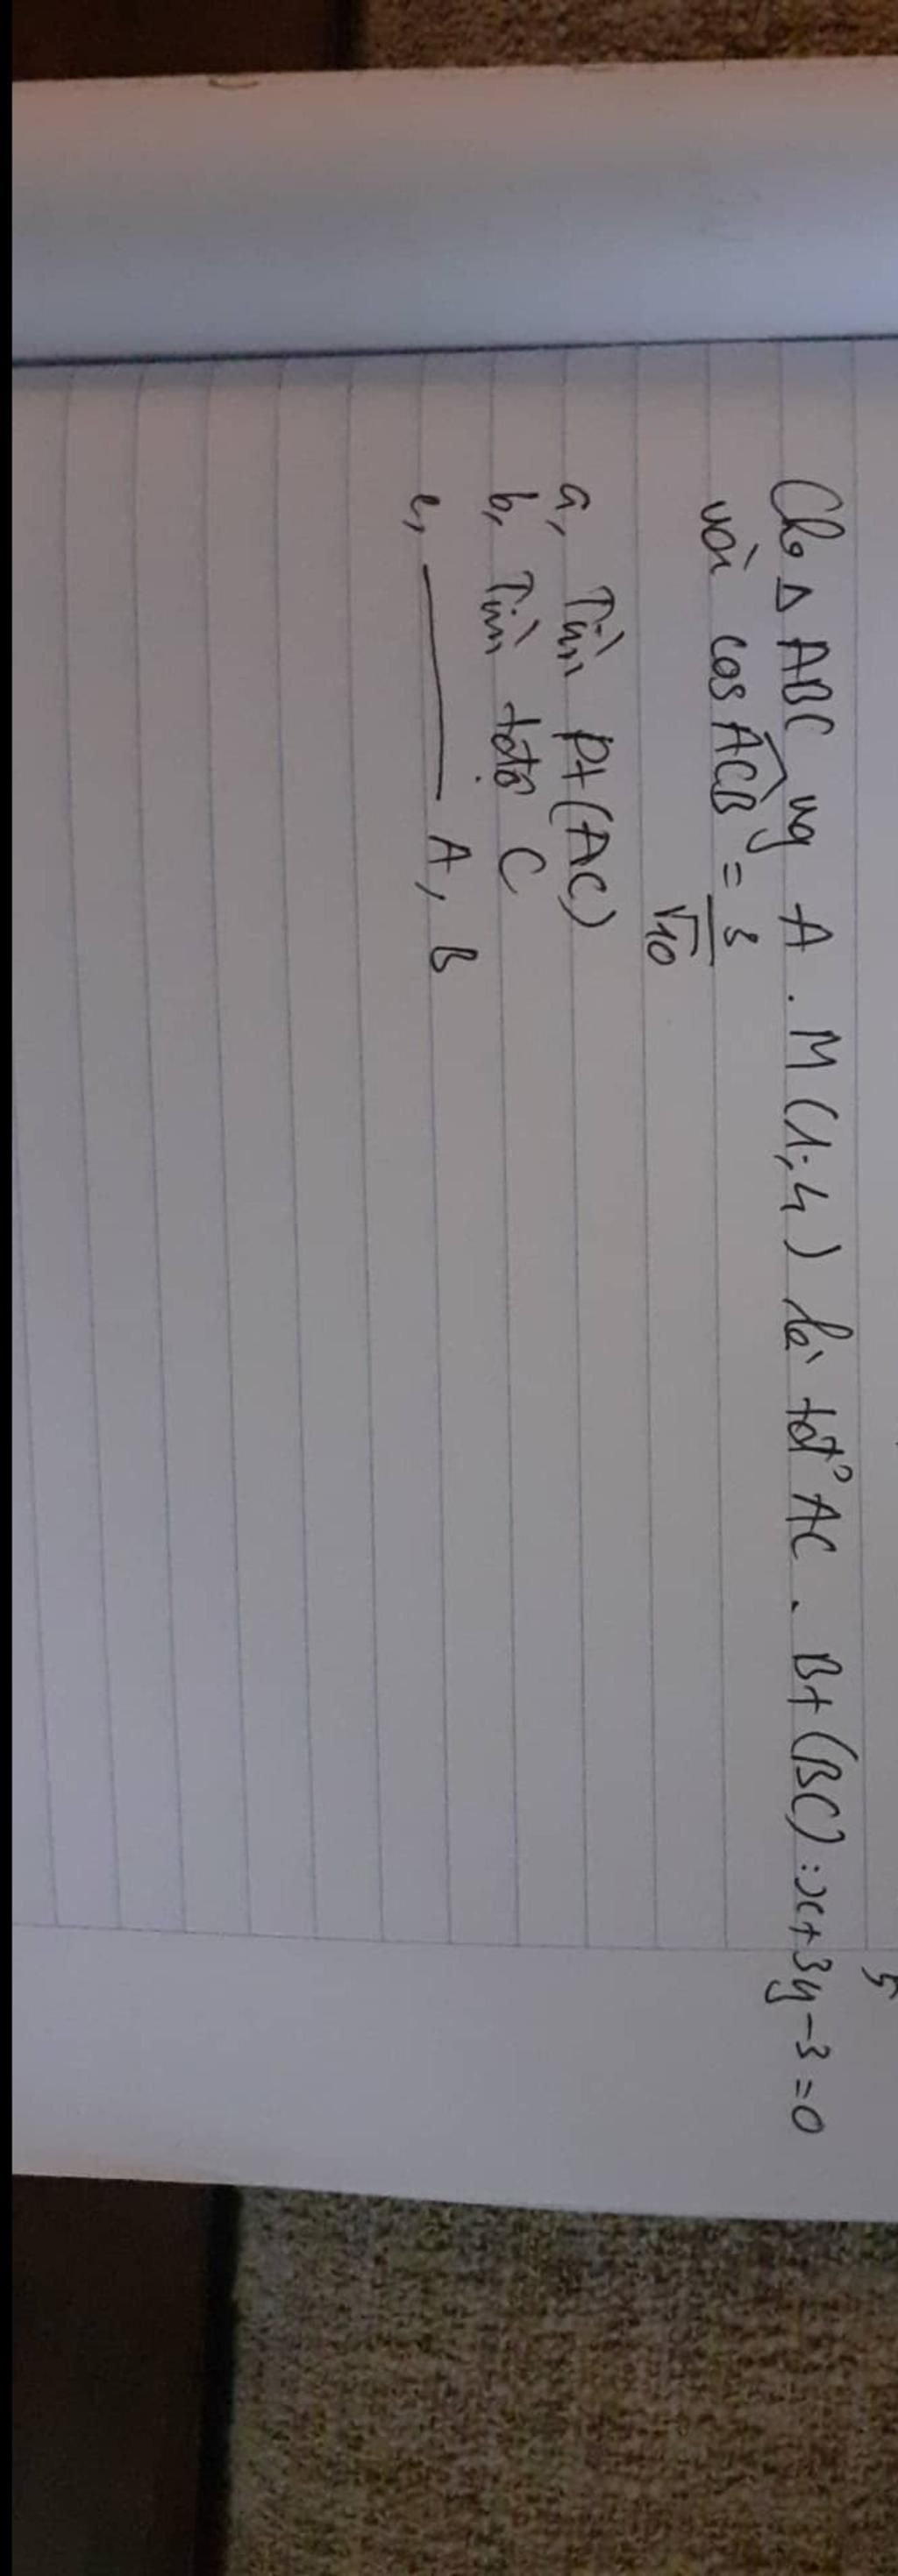 5
Cho Δ ABC vg A. M(1;4) là tđ AC. Bt (BC): x+3y-3=0
với cos ACB = 3/√10
a, Tìm Pt (AC)
b, Tìm tđộ C
c, ——— A, B